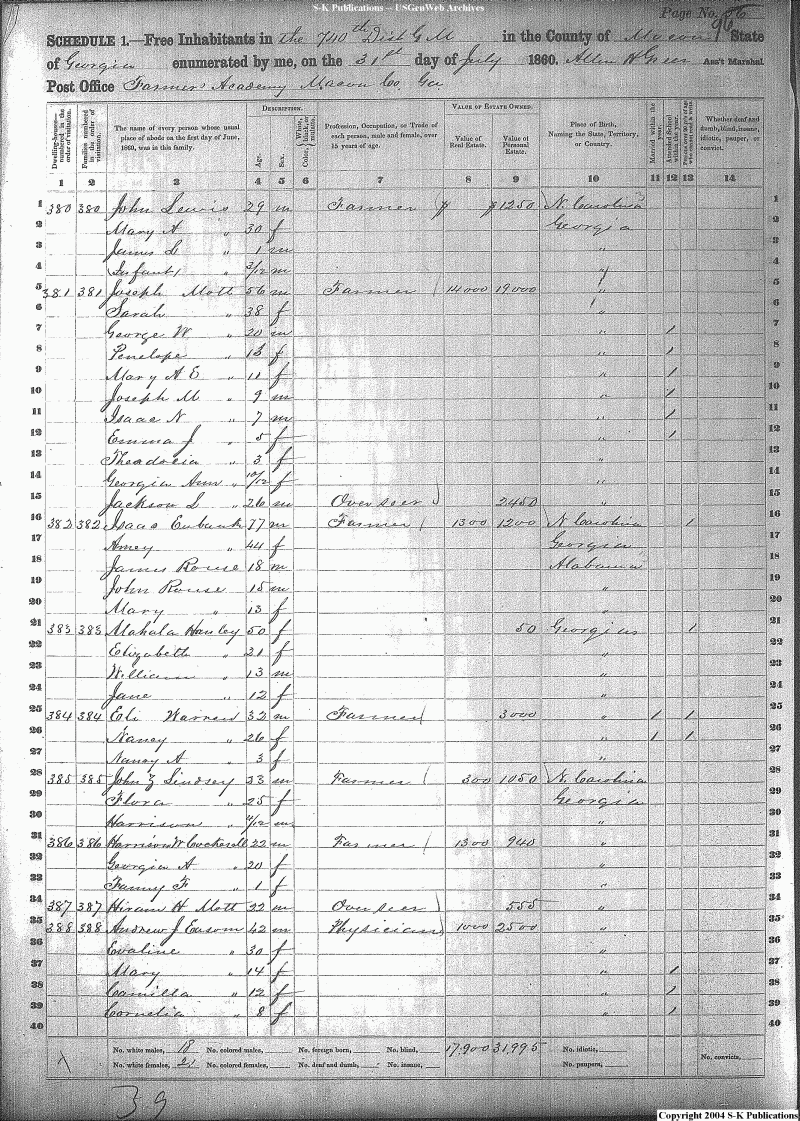 S-K Publications -- USGenWeb Archives
Page No.
SCHEDULE 1.—Free Inhabitants in the 740th Dist G M in the County of Macon State
of Georgia enumerated by me, on the 31st day of July 1860. Allen H Greer Ass't Marshal
Post Office Farmers Academy Macon Co, Ga
Dwelling-houses—numbered in the order of visitation.
Families numbered in the order of visitation.
The name of every person whose usual place of abode on the first day of June, 1860, was in this family.
DESCRIPTION.
Age.
Sex.
Color, White, black, or mulatto.
Profession, Occupation, or Trade of each person, male and female, over 15 years of age.
VALUE OF ESTATE OWNED.
Value of Real Estate.
Value of Personal Estate.
Place of Birth, Naming the State, Territory, or Country.
Married within the year.
Attended School within the year.
Whether deaf and dumb, blind, insane, idiotic, pauper, or convict.
1 2 3 4 5 6 7 8 9 10 11 12 13 14
1 380 380 John Lewis 29 m Farmer $ $1250 N. Carolina 1
2 Mary A " 30 f Georgia 2
3 James L " 1 m 3
4 Infant " 3/12 m " 4
5 381 381 Joseph Mott 56 m Farmer 14000 19000 " 5
6 Sarah " 38 f " 6
7 George W " 20 m " / 7
8 Penelope " 13 f " / 8
9 Mary A E " 11 f " / 9
10 Joseph M " 9 m " / 10
11 Isaac N " 7 m " / 11
12 Emma J " 5 f " / 12
13 Theadocia " 3 f " 13
14 Georgia Ann " 10/12 f " 14
15 Jackson L " 26 m Overseer 2450 " 15
16 382 382 Isaac Eubank 77 m Farmer 1300 1200 N Carolina / 16
17 Amey " 44 f Georgia 17
18 James Rouse 18 m Alabama 18
19 John Rouse 15 m " 19
20 Mary " 13 f " 20
21 383 383 Mahala Hanley 50 f 50 Georgia / 21
22 Elizabeth " 21 f " 22
23 William " 13 m " 23
24 Jane " 12 f " 24
25 384 384 Eli Warren 32 m Farmer 3000 " / / 25
26 Nancy " 26 f " / / 26
27 Nancy A " 3 f " 27
28 385 385 John Z Lindsey 33 m Farmer 300 1050 N. Carolina 28
29 Flora " 25 f Georgia 29
30 Harrison " 4/12 m " 30
31 386 386 Harrison W Cockerell 22 m Farmer 1300 940 " 31
32 Georgia A " 20 f " 32
33 Fanny F " 1 f " 33
34 387 387 Hiram H Mott 22 m Overseer 555 " 34
35 388 388 Andrew J Easom 42 m Physician 1000 2500 " 35
36 Evaline " 30 f " 36
37 Mary " 14 f " / 37
38 Camilla " 12 f " / 38
39 Cornelia " 8 f " / 39
40 40
No. white males, 18 No. colored males, No. foreign born, No. blind, 17.900 31,995 No. idiotic,
No. white females, 21 No. colored females, No. deaf and dumb, No. insane, No. paupers, No. convicts,
39
Copyright 2004 S-K Publications